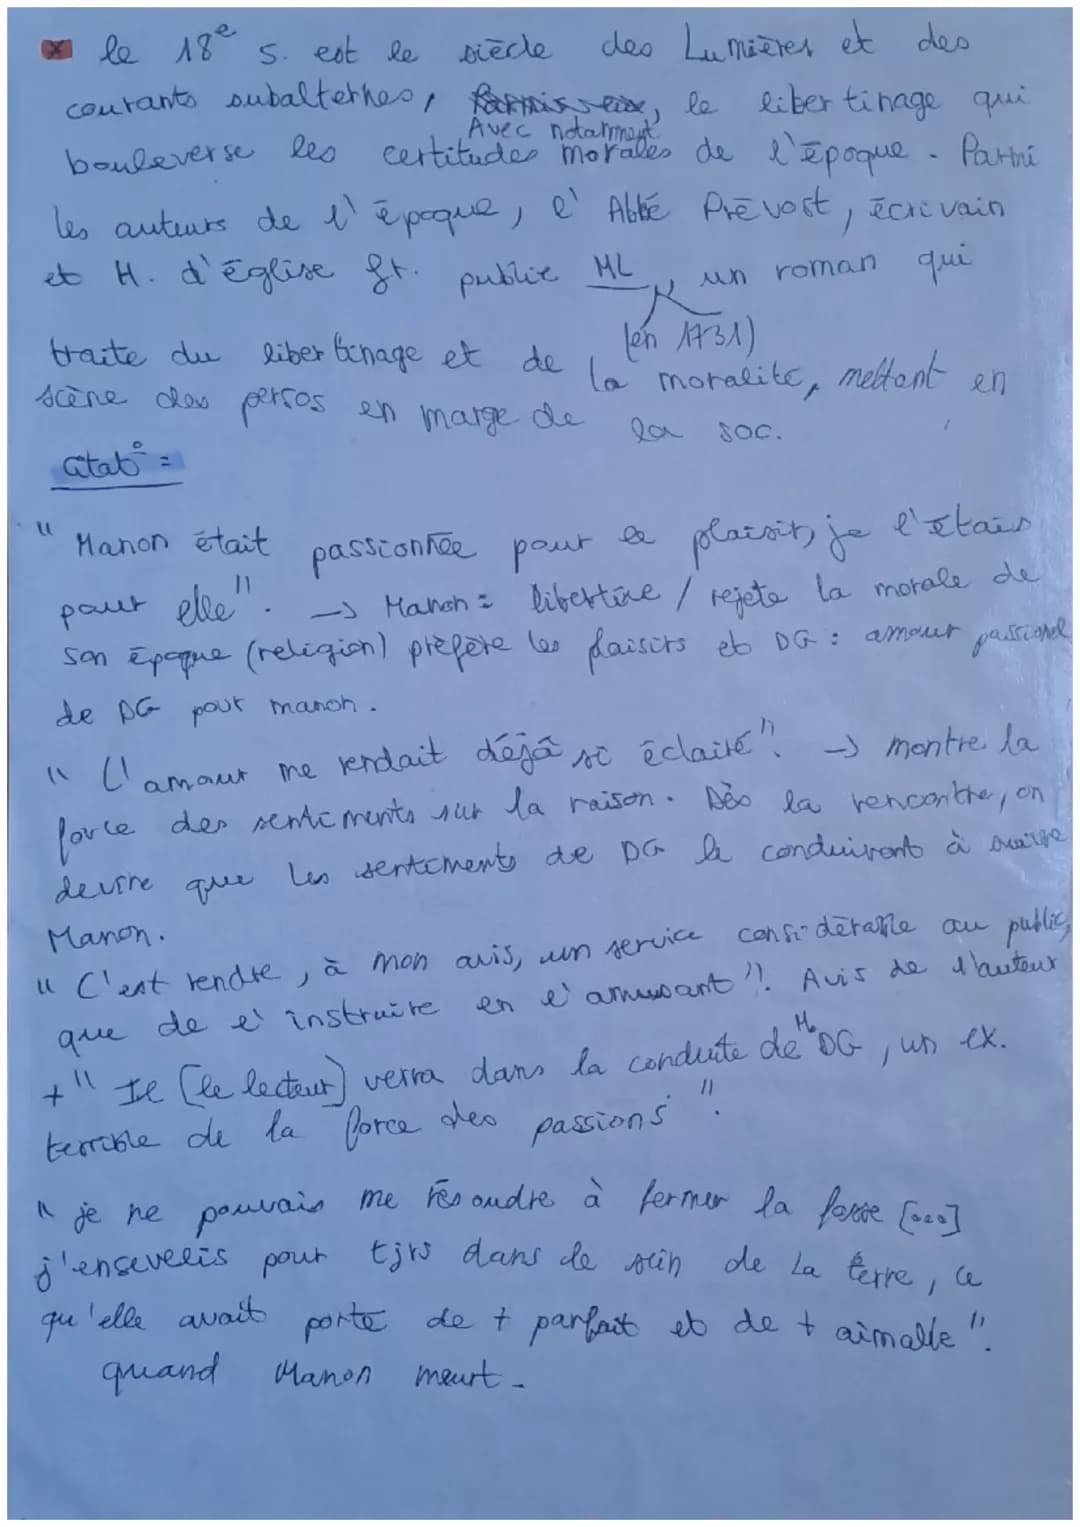 le 18e s. est le siècle des Lumières et des
courants subalternes, Parmis eux, le libertinage qui
Avec notamment
bouleverse les certitudes morales de l'époque. Parmi
les auteurs de l'époque, l'Abbé Prévost, écrivain
et H. d'église fr. publie ML, un roman qui
(en 1731)
traite du libertinage et de la moralité, mettant en
scène des persos en marge de la soc.
Citat° =
" Manon était passionnée pour le plaisir, je l'étais
pour elle". -> Manon = libertine / rejete la morale de
son époque (religion) préfère les plaisirs et DG : amour passionel
de DG pour manon.
" L'amour me rendait déjà si éclairé". -> montre la
force des sentiments sur la raison. Dès la rencontre, on
devine que les sentiments de DG le conduiront à suivre
Manon.
" C'est rendre, à mon avis, un service considérable au public,
que de l'instruire en l'amusant". Avis de l'auteur
+ " Il [le lecteur] verra dans la conduite de Mr DG, un ex.
terrible de la force des passions".
" je ne pouvais me résoudre à fermer la fosse [...]
j'ensevelis pour tjrs dans le sein de la terre, ce
qu'elle avait porté de + parfait et de + aimable".
quand Manon meurt.